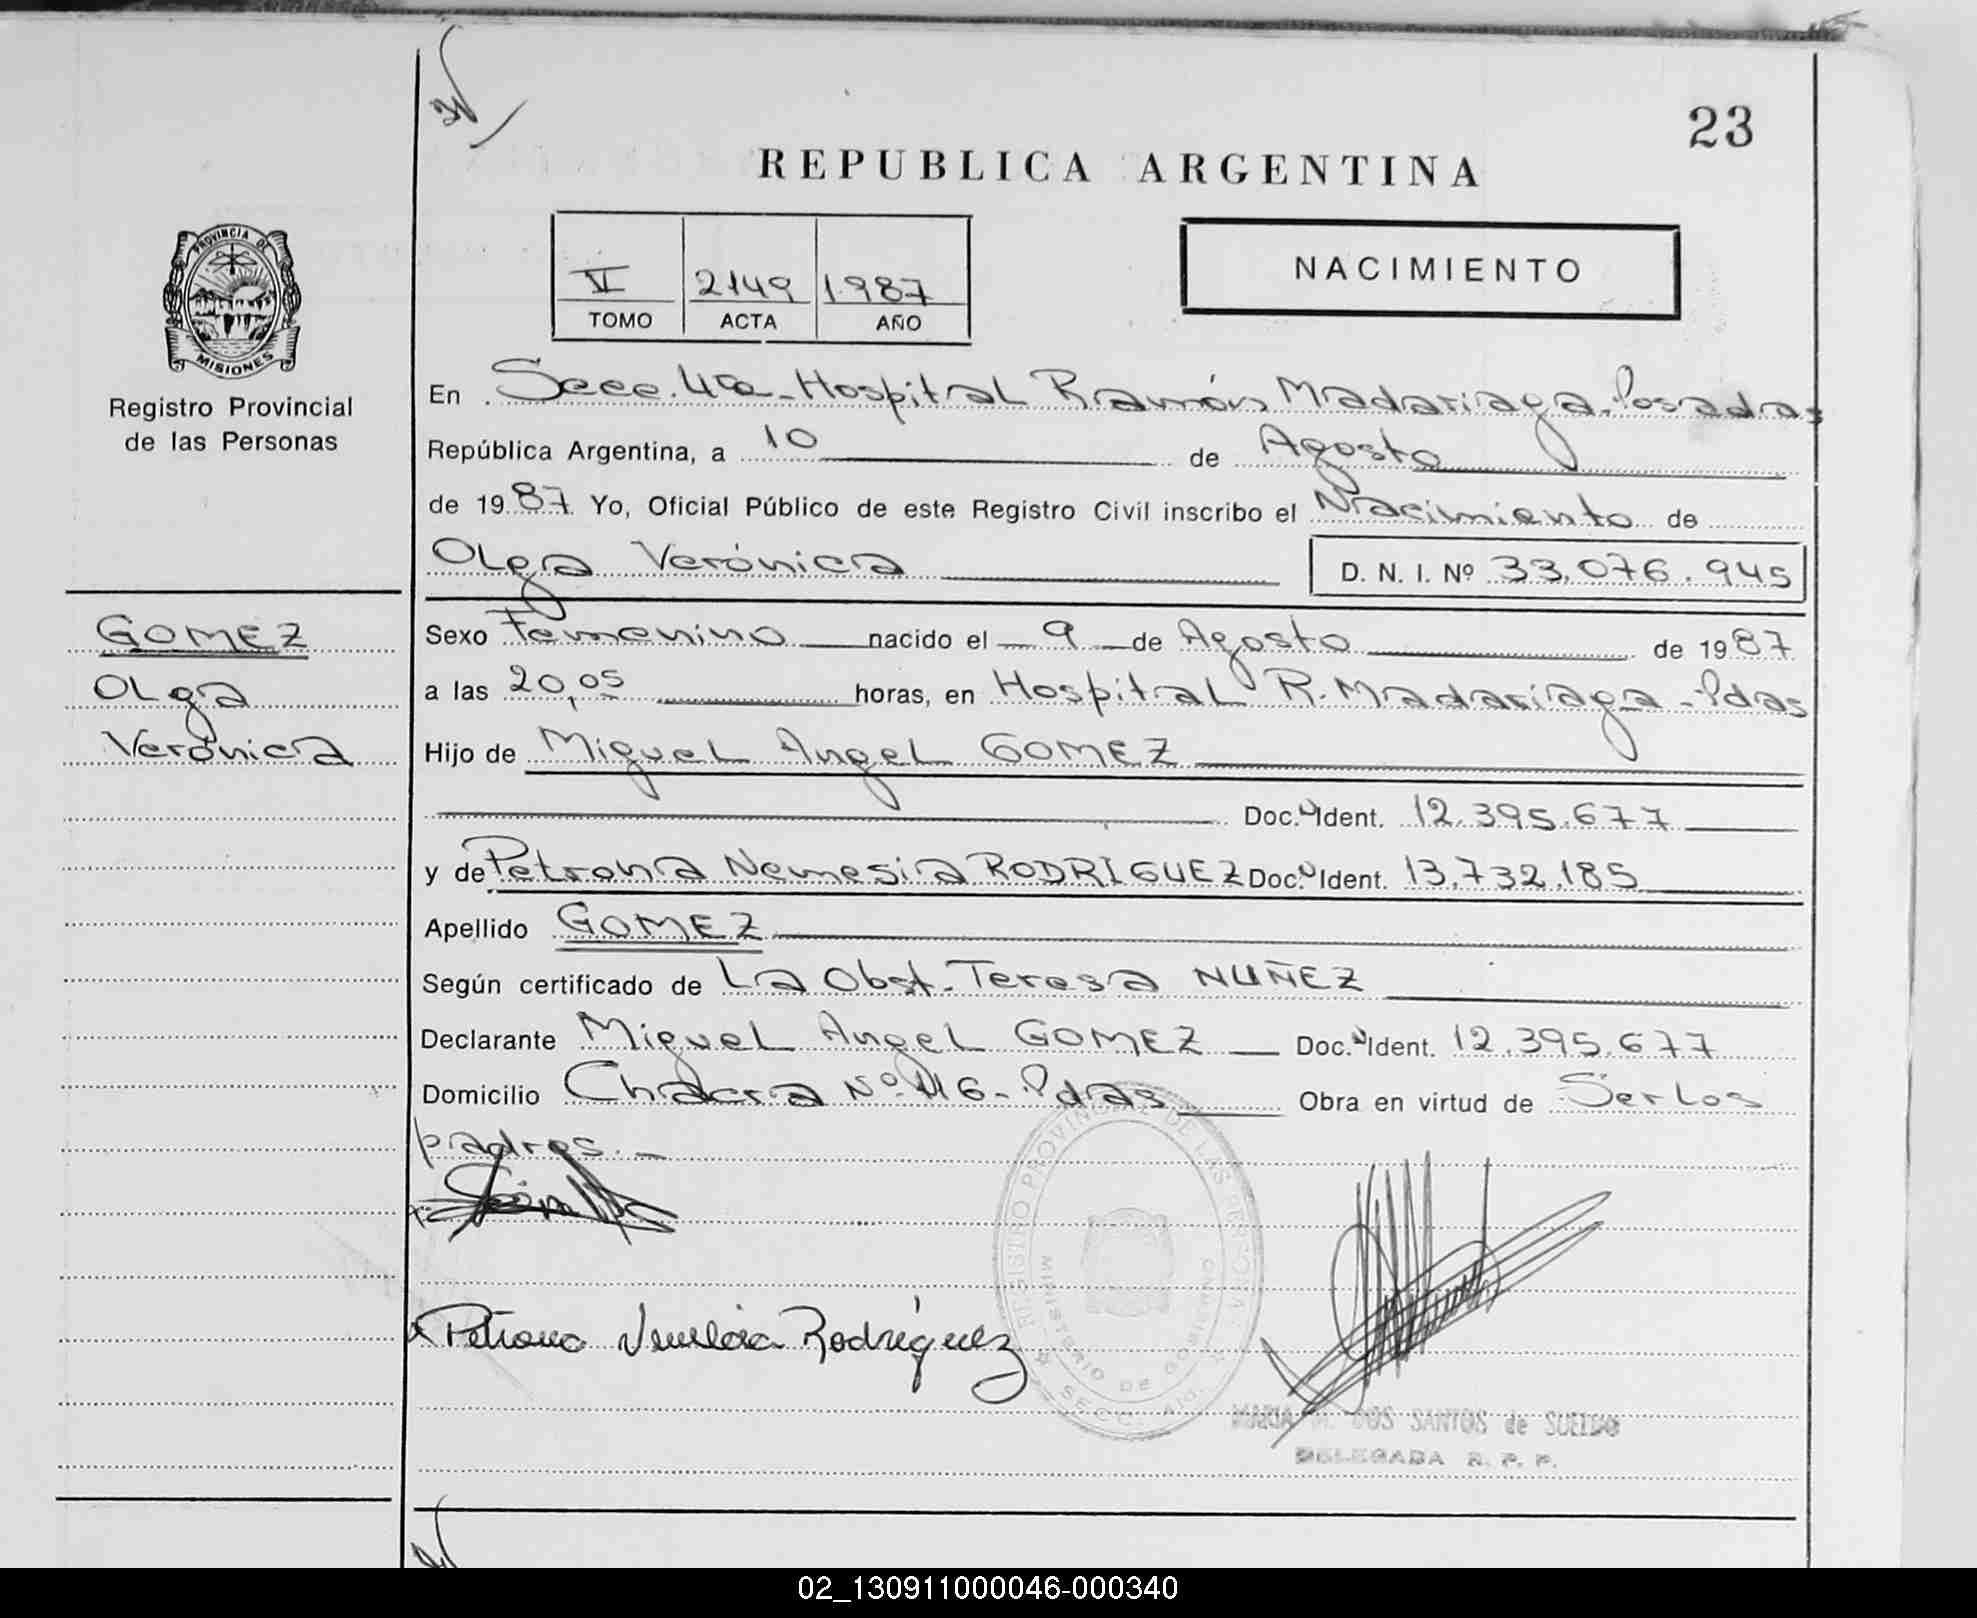 23
REPUBLICA ARGENTINA
PROVINCIA DE
MISIONES
Registro Provincial
de las Personas
VI 2149 1987
TOMO ACTA AÑO
NACIMIENTO
En Secc. 4ta - Hospital Ramón Madariaga - Posadas
República Argentina, a 10 de Agosto
de 1987 Yo, Oficial Público de este Registro Civil inscribo el Nacimiento de
Olga Verónica D. N. I. Nº 33.076.945
GOMEZ
Olga
Verónica
Sexo Femenino nacido el 9 de Agosto de 1987
a las 20,05 horas, en Hospital R. Madariaga - Pdas
Hijo de Miguel Angel GOMEZ
Doc. Ident. 12.395.677
y de Petrona Nemesia RODRIGUEZ Doc. Ident. 13.732.185
Apellido GOMEZ
Según certificado de La Obst. Teresa NUÑEZ
Declarante Miguel Angel GOMEZ Doc. Ident. 12.395.677
Domicilio Chacra Nº 116 - Pdas Obra en virtud de Ser los
padres. -
REGISTRO PROVINCIAL DE LAS PERSONAS
MINISTERIO DE GOBIERNO
SECC. 4ta.
Petrona Nemesia Rodríguez
MARIA M. DOS SANTOS de SUELDO
DELEGADA R. P. P.
02_130911000046-000340